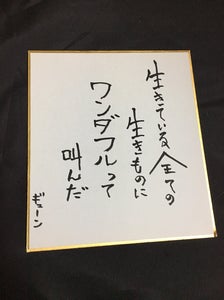 生きている全ての
生きものに
ワンダフルって
叫んだ
ギューン